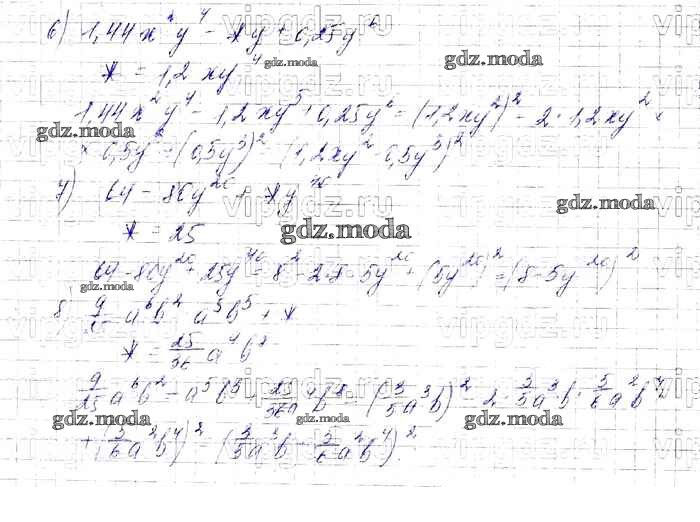 6) 1,44x²y⁴ - *y + 0,25y⁶
* = 1,2xy⁴
1,44x²y⁴ - 1,2xy⁵ + 0,25y⁶ = (1,2xy²)² - 2 · 1,2xy² ×
× 0,5y³ + (0,5y³)² = (1,2xy² - 0,5y³)²
7) 64 - 80y²⁰ + *y⁴⁰
* = 25
64 - 80y²⁰ + 25y⁴⁰ = 8² - 2·8·5y²⁰ + (5y²⁰)² = (8 - 5y²⁰)²
8) a⁶b² - a⁵b⁵ + *
* = 25/36 a⁴b⁸
9/25 a⁶b² - a⁵b⁵ + 25/36 a⁴b⁸ = (3/5 a³b)² - 2 · 3/5 a³b · 5/6 a²b⁴
+ (5/6 a²b⁴)² = (3/5 a³b - 5/6 a²b⁴)²
vipgdz.ru
gdz.moda